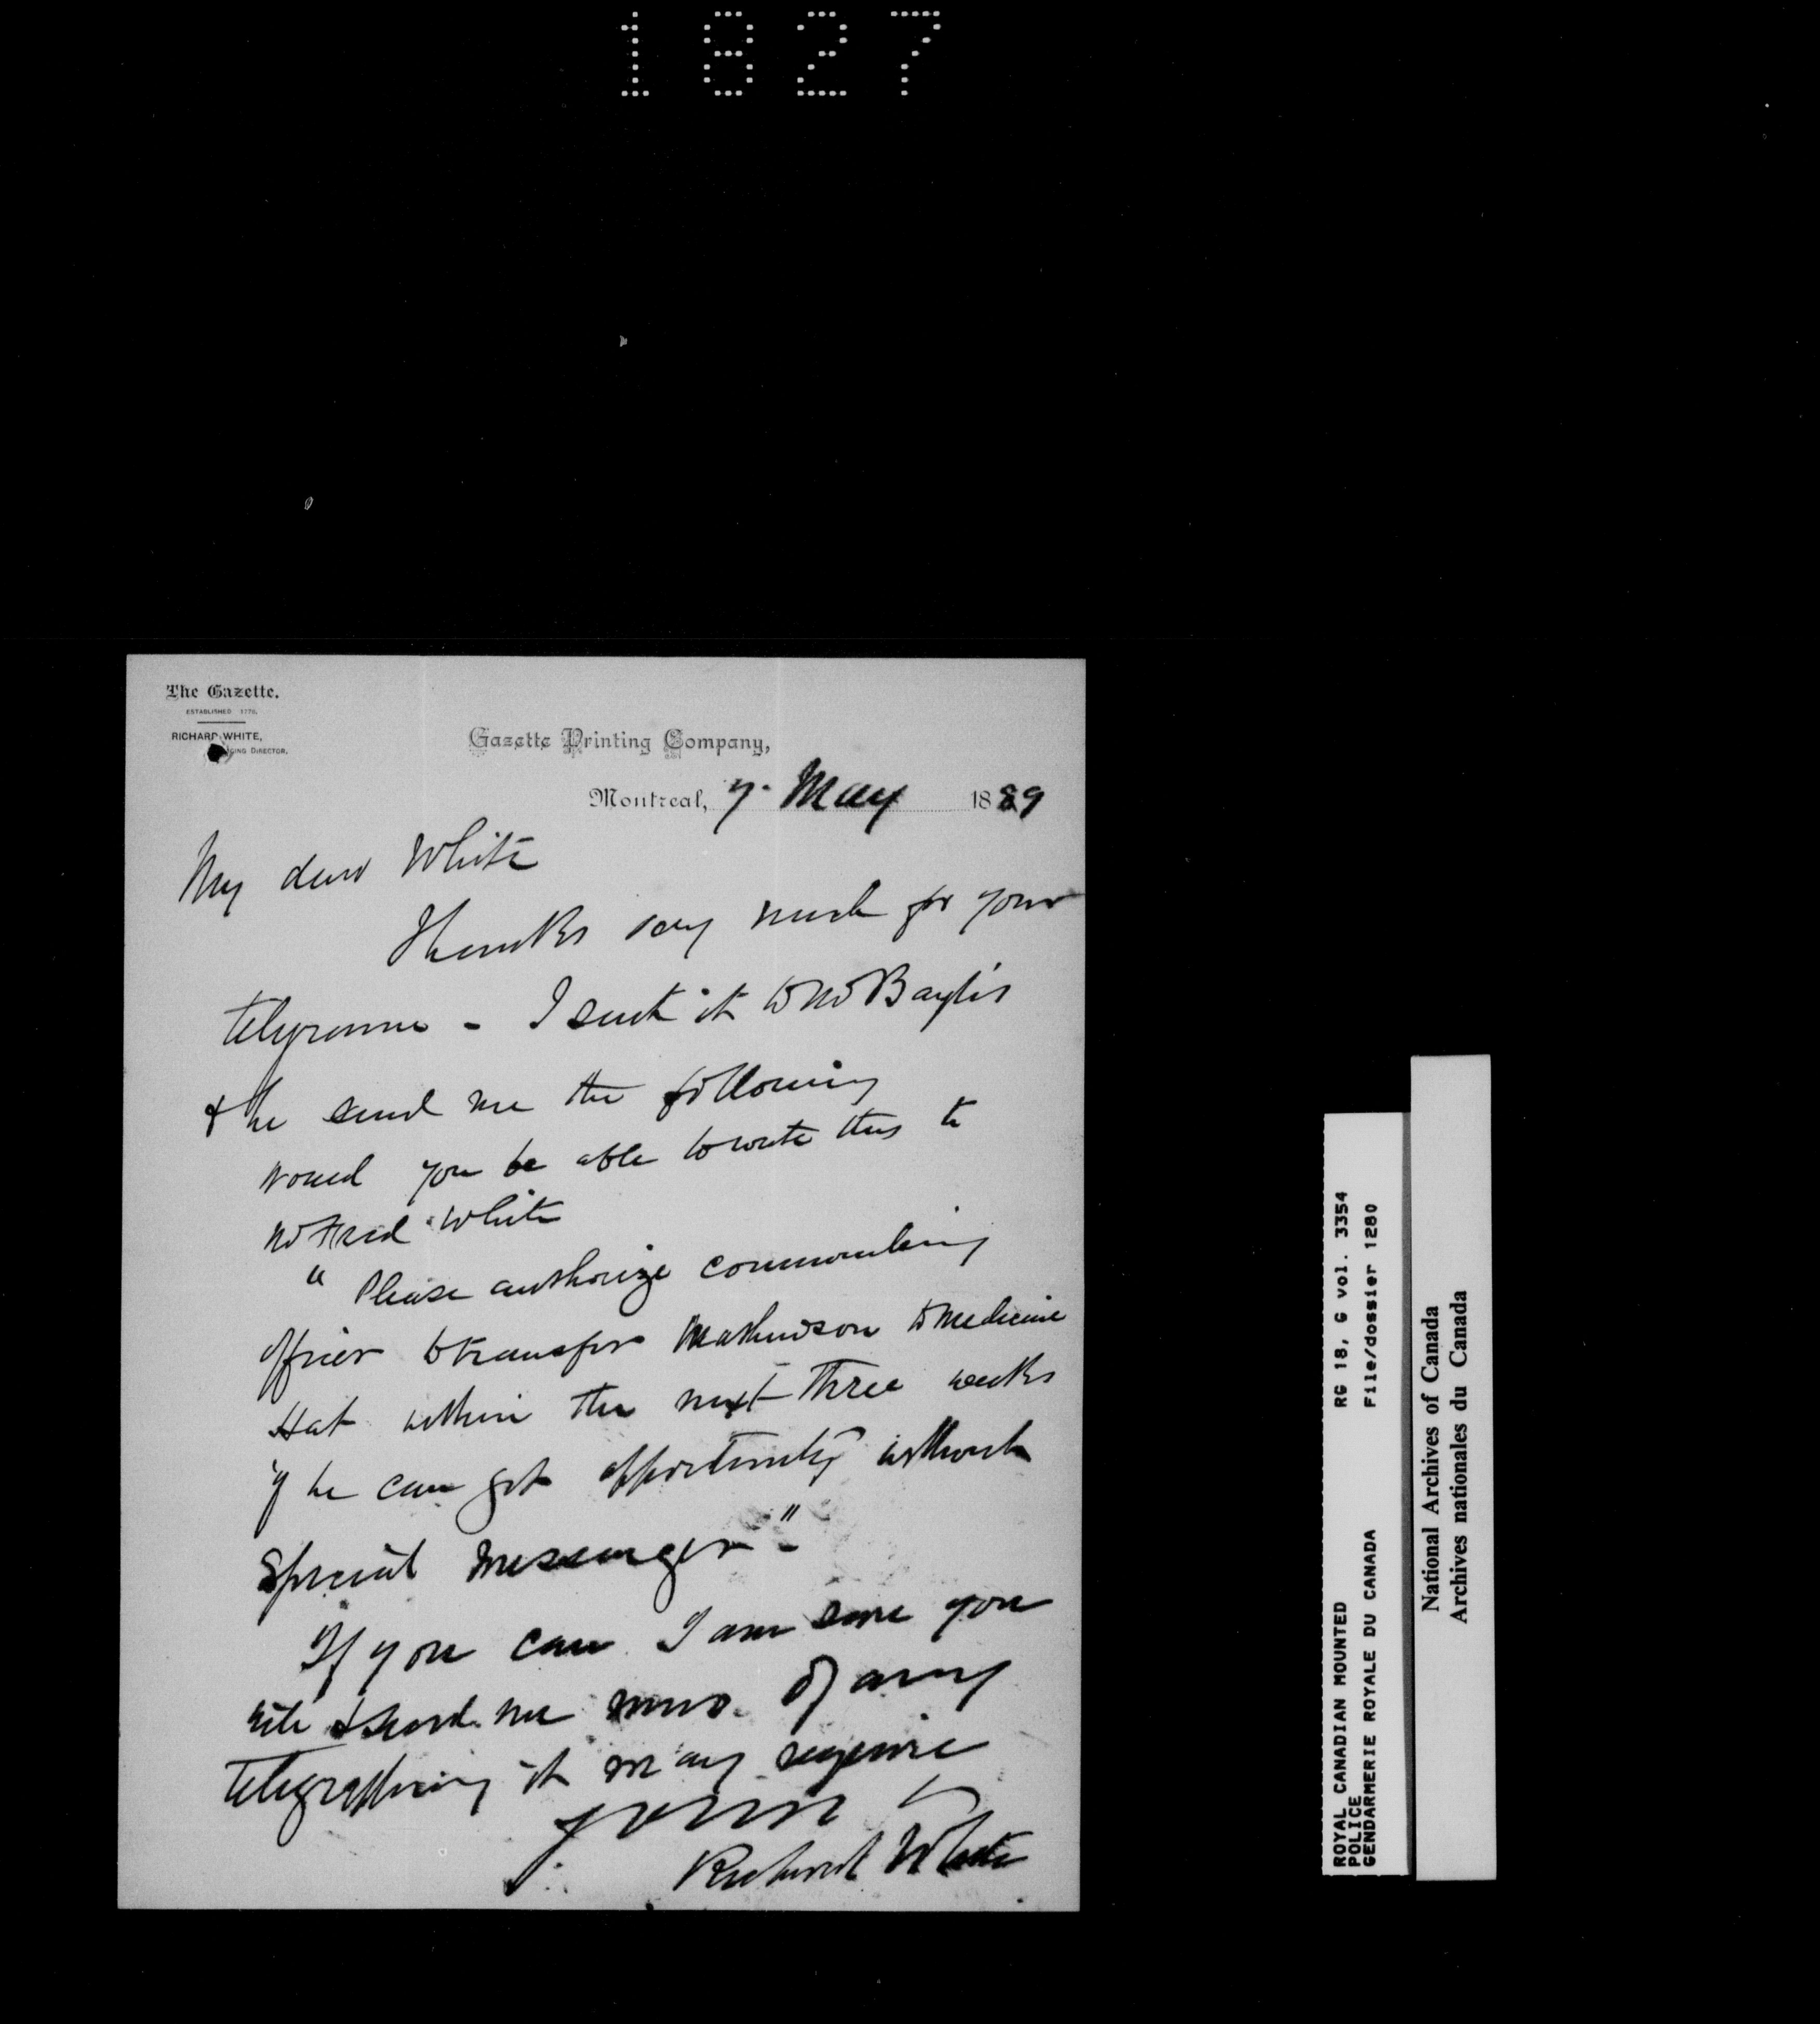 1827
The Gazette.
ESTABLISHED 1778.
RICHARD WHITE,
GING DIRECTOR.
Gazette Printing Company,
Montreal, 7. May 1889
My dear White
Thanks very much for your
telegramme - I sent it to Mr Baylis
& he send me the following
would you be able to write this to
Mr Fred White
" Please authorize commanding
officer to transfer Mathewson to Medicine
Hat within the next three weeks
if he can get opportunity without
Special Messenger - "
If you can I am sure you
will & send me memo of any
telegraphing it may require
Yours
Richard White
ROYAL CANADIAN MOUNTED RG 18, G vol. 3354
POLICE File/dossier 1280
GENDARMERIE ROYALE DU CANADA
National Archives of Canada
Archives nationales du Canada